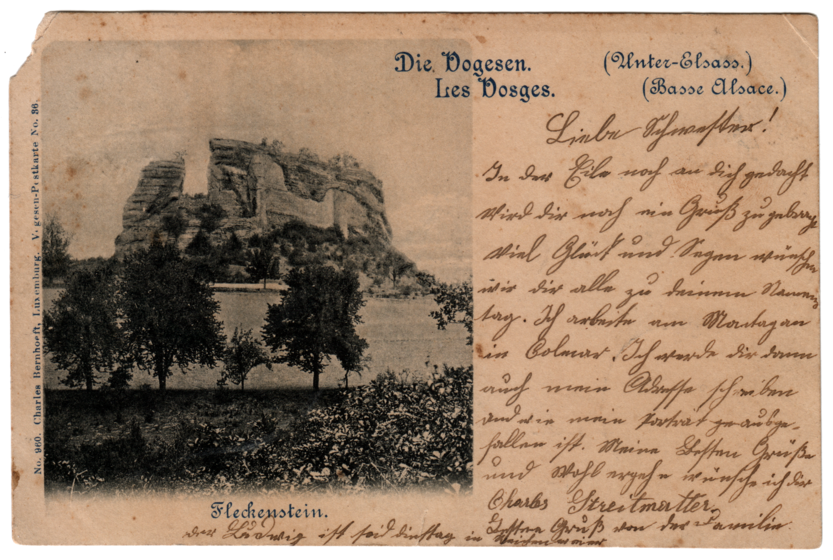 Die Vogesen. (Unter-Elsass.)
Les Vosges. (Basse Alsace.)
No. 960. Charles Bernhoeft, Luxemburg. Vogesen-Postkarte No. 36
Liebe Schwester!
In der Eile noch an dich gedacht
wird dir noch ein Gruß zu gebracht
Viel Glück und Segen wünschen
wir dir alle zu deinem Namens
tag. Ich arbeite am Montag an
in Colmar. Ich werde dir dann
auch mein Adresse schreiben
und wie mein Portrat ausge-
fallen ist. Meine besten Grüße
und Wohl ergehn wünsche ich dir
Charles Streitmatter
Fleckenstein.
Besten Gruß von der Familie
der Ludwig ist seid dinstag in